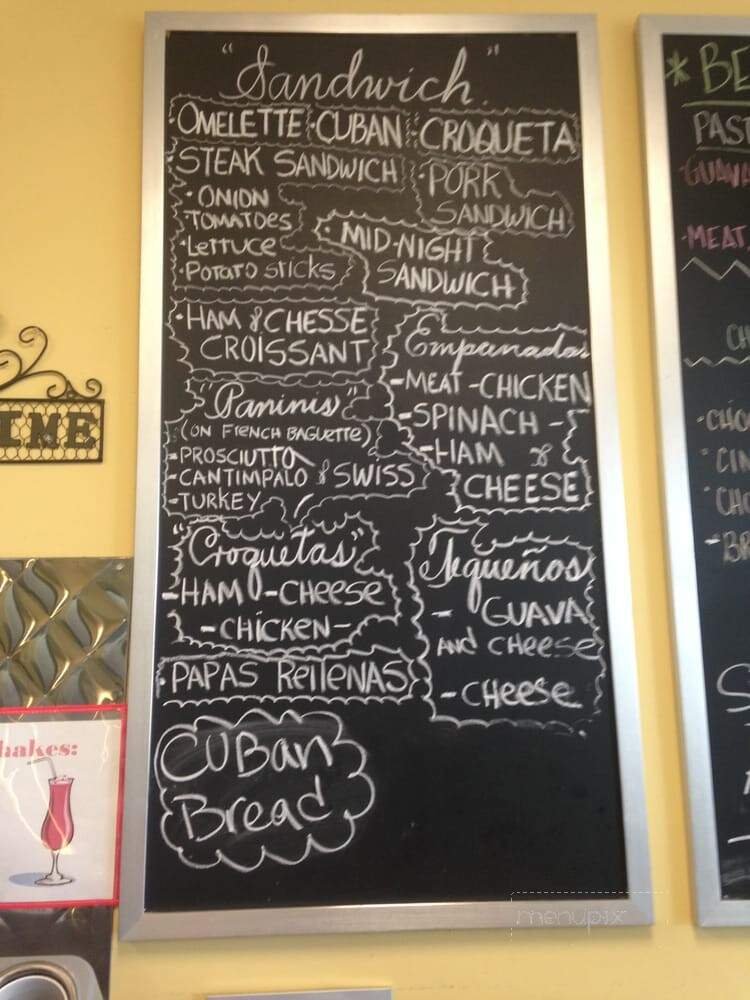 "Sandwich"
OMELETTE · CUBAN · CROQUETA
STEAK SANDWICH
· ONION
· TOMATOES
· LETTUCE
· POTATO STICKS
· PORK
SANDWICH
· MID-NIGHT
SANDWICH
· HAM & CHESSE
CROISSANT
Empanadas
- MEAT - CHICKEN
- SPINACH -
- HAM &
CHEESE
"Paninis"
(ON FRENCH BAGUETTE)
- PROSCIUTTO
- CANTIMPALO & SWISS
- TURKEY
"Croquetas"
- HAM - CHEESE
- CHICKEN -
Tequeños
- GUAVA
AND CHEESE
- CHEESE
· PAPAS REllENAS
CUBan
Bread
* BE
PAST
GUAVA
· MEAT
CH
- CHO
· CIN
· CHO
- BR
IME
hakes:
menupix